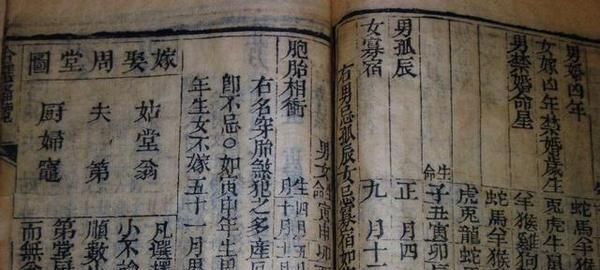 男婚凶年
蛇馬羊
女嫁凶年禁婚歲生
兎虎牛
男禁婚命星
羊猴雞狗
蛇馬羊猴
虎兎龍蛇
生命子丑寅卯
男孤辰
正月四
女寡宿
九月十二
右男忌孤辰女忌寡宿如
男女生命寅申卯
胞胎相衝
生四月五
月十月十
右名穿胎煞犯之多産厄
卽不忌○如寅申年生男
年生女不嫁五十一月男
嫁娶周堂圖
姑堂翁
夫第
厨婦竈
凡選擇
小不論
順數
第堂厨
而無翁